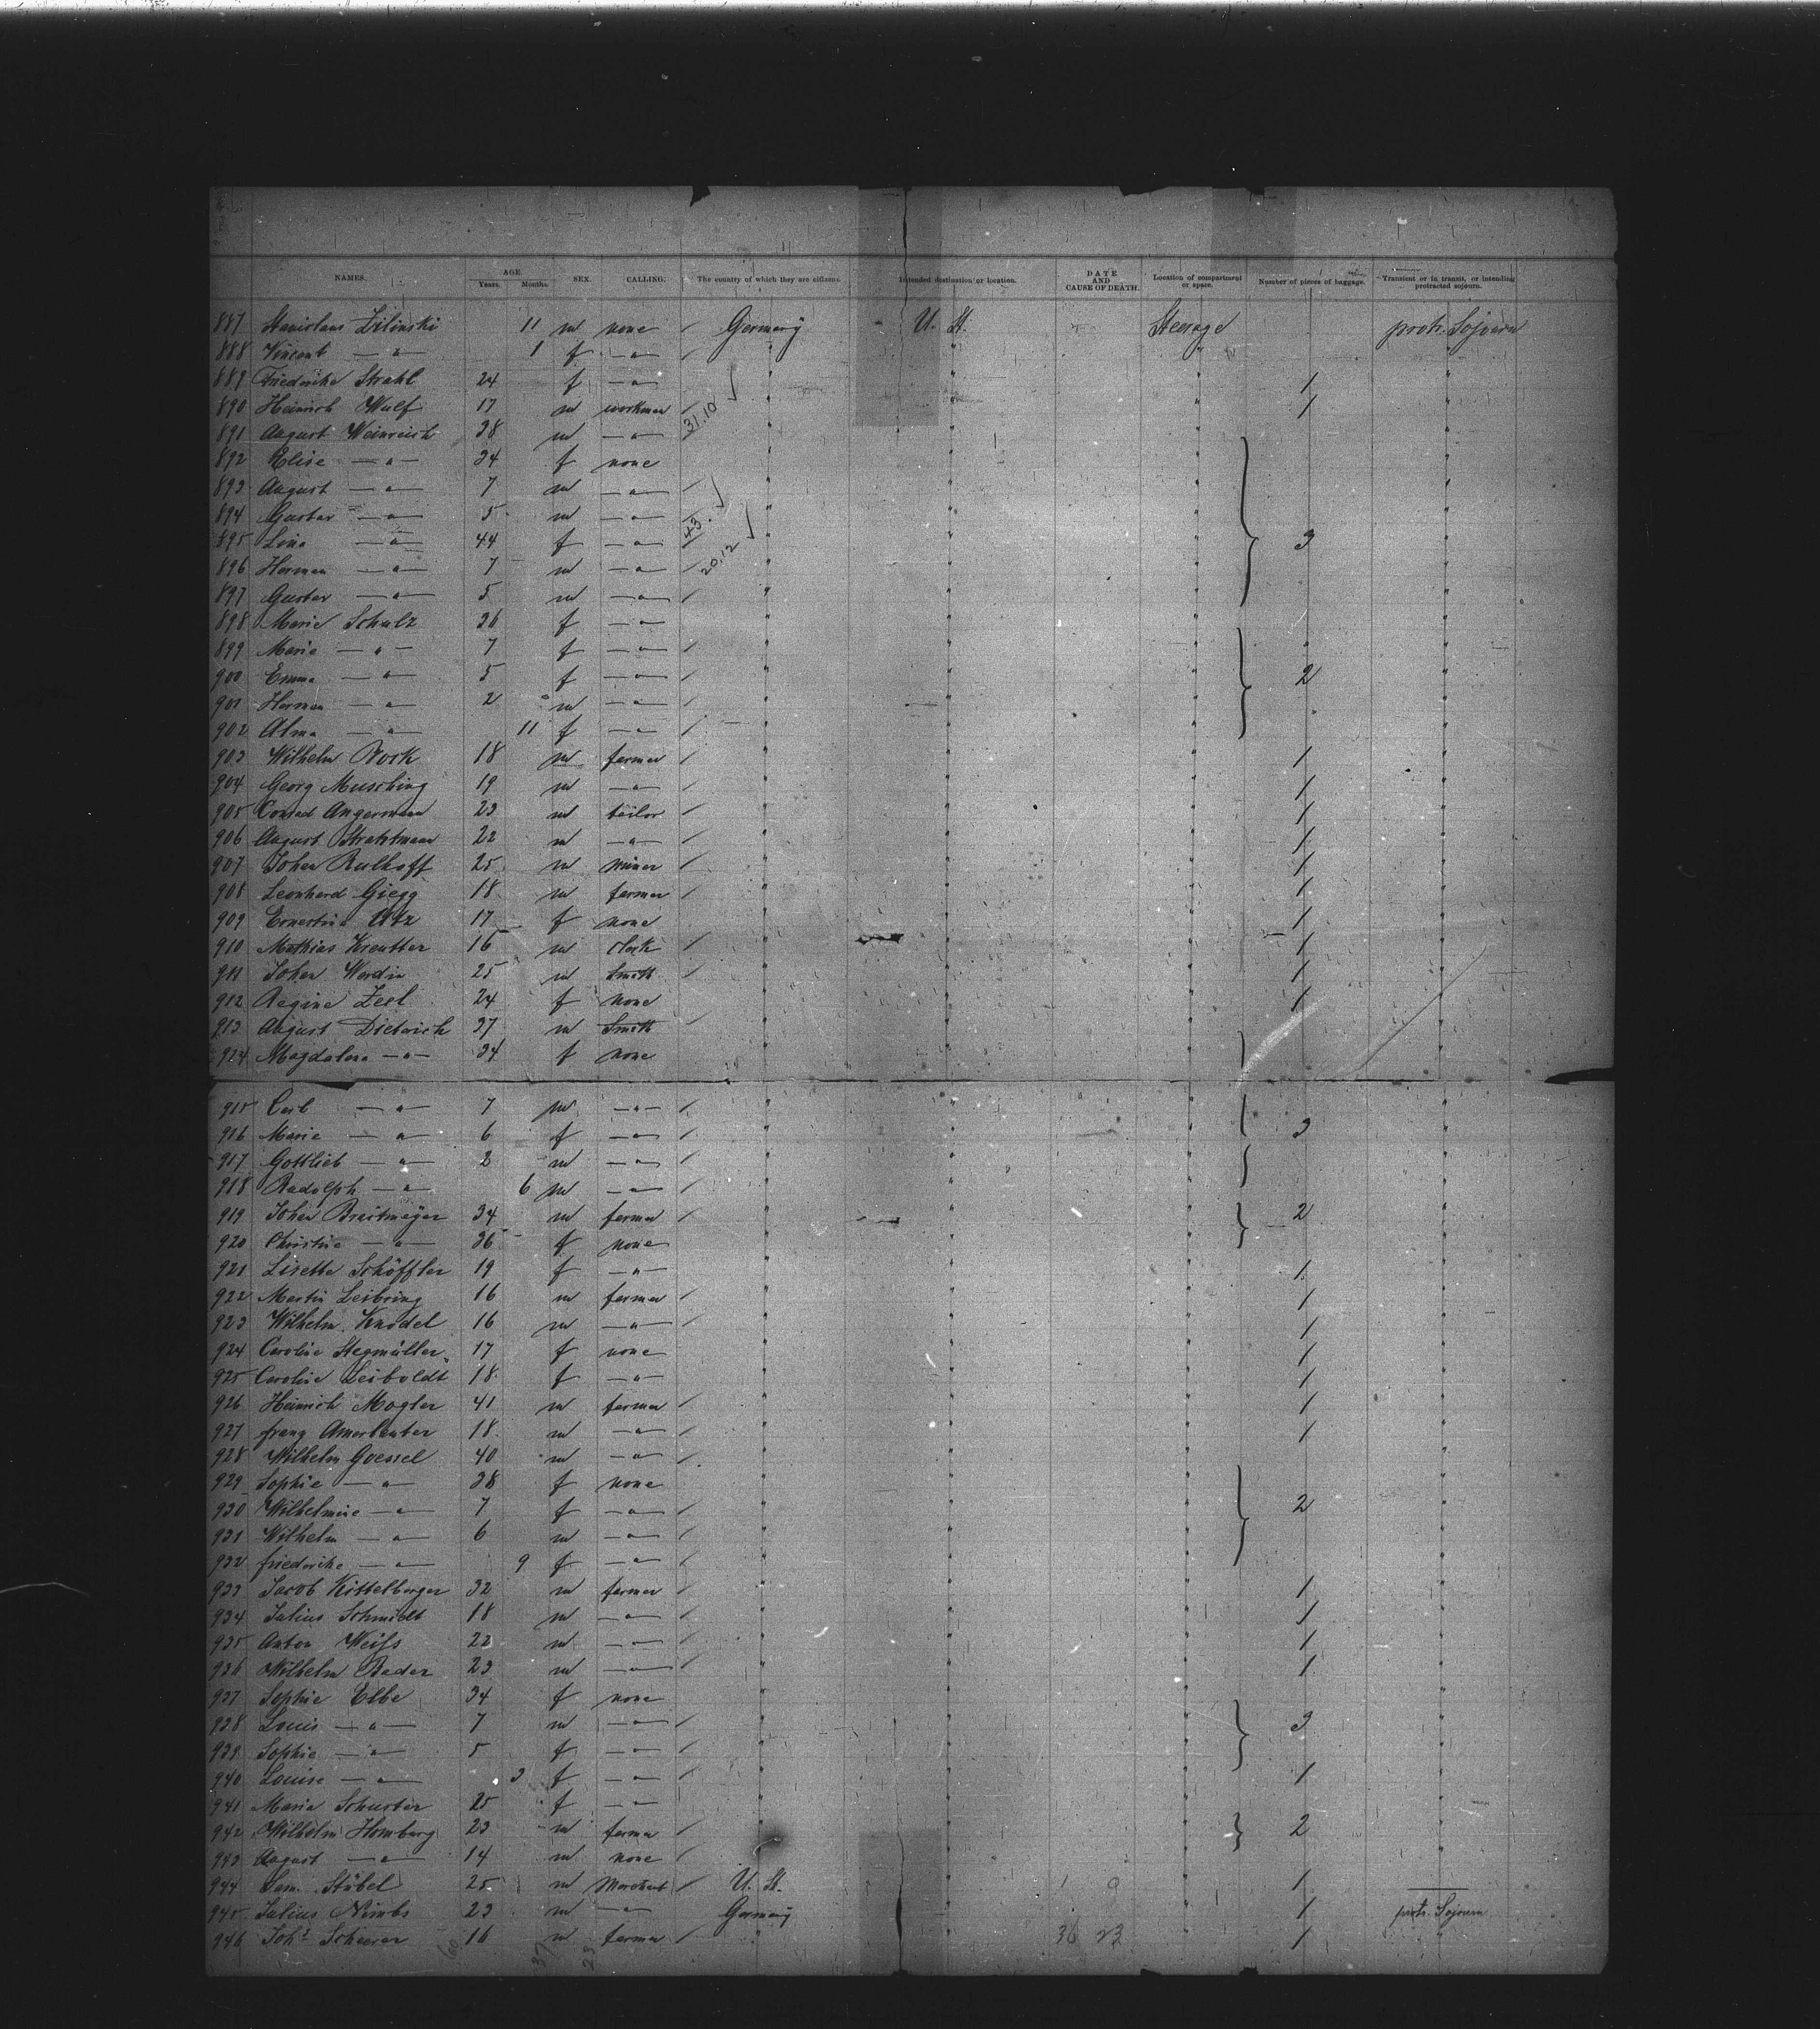 NAMES. AGE. Years. Months. SEX. CALLING. The country of which they are citizens. Intended destination or location. DATE AND CAUSE OF DEATH. Location of compartment or space. Number of pieces of baggage. Transient or in transit, or intending protracted sojourn.
887 Stanislaus Zilinski 11 m none / Germany U. St. Steerage protr. Sojourn
888 Vincent —"— 1 f —"— / " " " "
889 Friederike Strahl 24 f —"— " " " 1 "
890 Heinrich Wulf 17 m workman / 31.10 " " " 1 "
891 August Weinreich 38 m —"— " " " "
892 Elise —"— 34 f none " " " "
893 August —"— 7 m —"— / " " " "
894 Gustav —"— 5 m —"— / 43. " " " "
895 Lina —"— 44 f —"— / " " " 3 "
896 Herman —"— 7 m —"— / 20.12 " " " "
897 Gustav —"— 5 m —"— / " " " "
898 Marie Schulz 36 f —"— " " " "
899 Maria —"— 7 f —"— / " " " "
900 Emma —"— 5 f —"— / " " " 2 "
901 Herman —"— 2 m —"— / " " " "
902 Alma —"— 11 f —"— / " " " "
903 Wilhelm Bork 18 m farmer / " " " 1 "
904 Georg Musching 19 m —"— / " " " 1 "
905 Conrad Angermann 23 m tailor / " " " 1 "
906 August Stratmann 22 m —"— / " " " 1 "
907 Johan Rulhoff 25 m miner / " " " 1 "
908 Leonhard Giegg 18 m farmer / " " " 1 "
909 Ernestine Utz 17 f none " " " 1 "
910 Mathias Kreutter 16 m clerk / " " " 1 "
911 Johan Werdin 25 m Smith / " " " 1 "
912 Regine Zeel 24 f none " " " 1 "
913 August Dieterich 37 m Smith / " " " "
924 Magdalena —"— 34 f none " " " "
915 Carl —"— 7 m —"— / " " " "
916 Marie —"— 6 f —"— / " " " 3 "
917 Gottlieb —"— 2 m —"— / " " " "
918 Rudolph —"— 6 m —"— / " " " "
919 Johan Breitmeyer 34 m farmer / " " " 2 "
920 Christine —"— 36 f none " " " "
921 Lisette Schöffler 19 f —"— " " " 1 "
922 Martin Leibring 16 m farmer / " " " 1 "
923 Wilhelm Knödel 16 m —"— / " " " 1 "
924 Caroline Stegmüller 17 f none " " " 1 "
925 Caroline Leiboldt 18 f —"— " " " 1 "
926 Heinrich Mogler 41 m farmer / " " " 1 "
927 franz Amerlenter 18 m —"— / " " " 1 "
928 Wilhelm Goessel 40 m —"— / " " " "
929 Sophie —"— 38 f none " " " "
930 Wilhelmine —"— 7 f —"— / " " " 2 "
931 Wilhelm —"— 6 m —"— / " " " "
932 friederike —"— 9 f —"— / " " " "
933 Jacob Kittelberger 32 m farmer / " " " 1 "
934 Julius Schmidt 18 m —"— / " " " 1 "
935 Anton Weifs 22 m —"— / " " " 1 "
936 Wilhelm Bader 23 m —"— / " " " 1 "
937 Sophie Elbe 34 f none " " " "
938 Louis —"— 7 m —"— / " " " 3 "
939 Sophie —"— 5 f —"— / " " " "
940 Louise —"— 3 f —"— / " " " 1 "
941 Maria Schuster 25 f —"— " " " "
942 Wilhelm Homburg 23 m farmer / " " " 2 "
943 August —"— 14 m none / " " " "
944 Sam. Stübel 25 m Merchant / U. St. " 1 0 " 1 ——
945 Julius Nimbs 23 m —"— Germany " " 1 protr. Sojourn
946 Joh. Scheerer 16 m farmer / " " 36 23 " 1 "
60 37 23